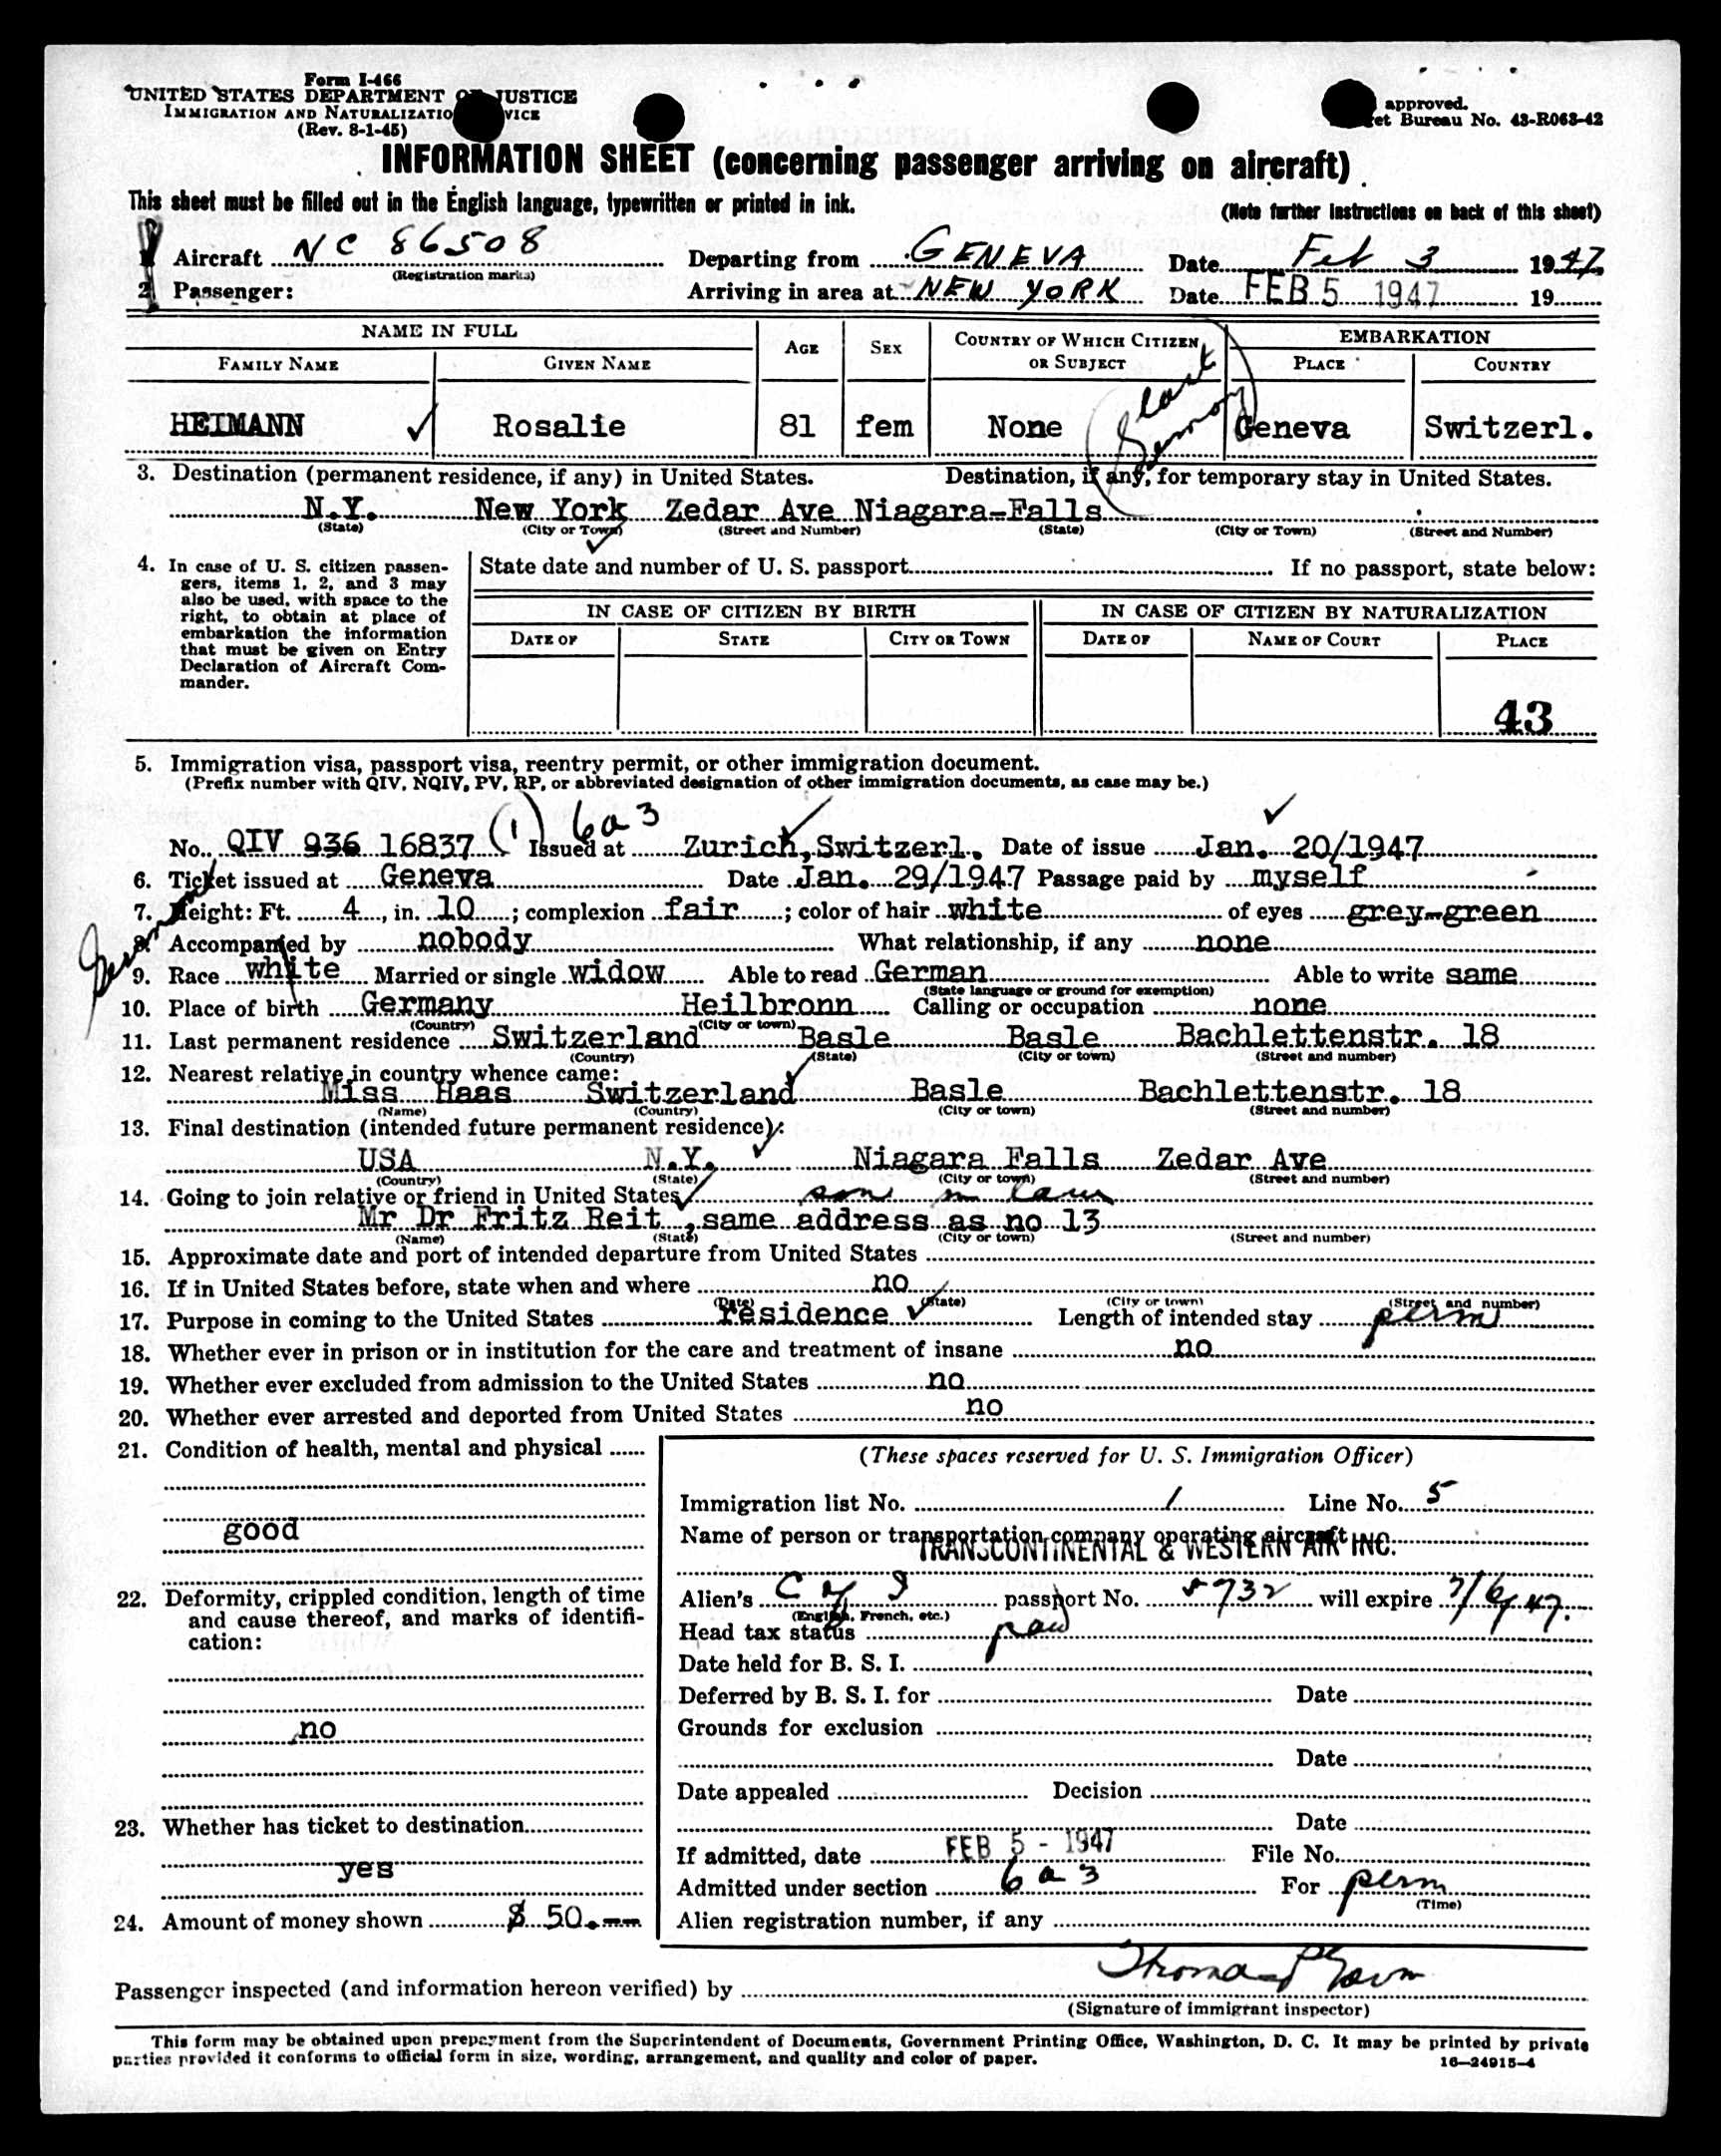 Form I-466
UNITED STATES DEPARTMENT OF JUSTICE
IMMIGRATION AND NATURALIZATIO VICE
(Rev. 8-1-45)
approved.
et Bureau No. 43-R063-42
INFORMATION SHEET (concerning passenger arriving on aircraft)
This sheet must be filled out in the English language, typewritten or printed in ink.
(Note further instructions on back of this sheet)
Aircraft NC 86508 Departing from GENEVA Date Feb 3 1947
(Registration marks)
2 Passenger: Arriving in area at NEW YORK Date FEB 5 1947 19
NAME IN FULL AGE SEX COUNTRY OF WHICH CITIZEN OR SUBJECT EMBARKATION
FAMILY NAME GIVEN NAME PLACE COUNTRY
last
Germany
HEIMANN Rosalie 81 fem None Geneva Switzerl.
3. Destination (permanent residence, if any) in United States. Destination, if any, for temporary stay in United States.
N.Y. New York Zedar Ave Niagara-Falls
(State) (City or Town) (Street and Number) (State) (City or Town) (Street and Number)
4. In case of U. S. citizen passengers, items 1, 2, and 3 may also be used, with space to the right, to obtain at place of embarkation the information that must be given on Entry Declaration of Aircraft Commander.
State date and number of U. S. passport If no passport, state below:
IN CASE OF CITIZEN BY BIRTH IN CASE OF CITIZEN BY NATURALIZATION
DATE OF STATE CITY OR TOWN DATE OF NAME OF COURT PLACE
43
5. Immigration visa, passport visa, reentry permit, or other immigration document.
(Prefix number with QIV, NQIV, PV, RP, or abbreviated designation of other immigration documents, as case may be.)
(1) 6a3
No. QIV 936 16837 Issued at Zurich, Switzerl. Date of issue Jan. 20/1947
6. Ticket issued at Geneva Date Jan. 29/1947 Passage paid by myself
7. Height: Ft. 4, in. 10; complexion fair; color of hair white of eyes grey-green
German
8. Accompanied by nobody What relationship, if any none
9. Race white Married or single widow Able to read German Able to write same
(State language or ground for exemption)
10. Place of birth Germany Heilbronn Calling or occupation none
(Country) (City or town)
11. Last permanent residence Switzerland Basle Basle Bachlettenstr. 18
(Country) (State) (City or town) (Street and number)
12. Nearest relative in country whence came:
Miss Haas Switzerland Basle Bachlettenstr. 18
(Name) (Country) (City or town) (Street and number)
13. Final destination (intended future permanent residence):
USA N.Y. Niagara Falls Zedar Ave
(Country) (State) (City or town) (Street and number)
14. Going to join relative or friend in United States son in law
Mr Dr Fritz Reit ,same address as no 13
(Name) (State) (City or town) (Street and number)
15. Approximate date and port of intended departure from United States
16. If in United States before, state when and where no
(Date) (State) (City or town) (Street and number)
17. Purpose in coming to the United States residence Length of intended stay perm
18. Whether ever in prison or in institution for the care and treatment of insane no
19. Whether ever excluded from admission to the United States no
20. Whether ever arrested and deported from United States no
21. Condition of health, mental and physical
good
22. Deformity, crippled condition, length of time and cause thereof, and marks of identification:
no
23. Whether has ticket to destination
yes
24. Amount of money shown $ 50.--
(These spaces reserved for U. S. Immigration Officer)
Immigration list No. 1 Line No. 5
Name of person or transportation company operating aircraft
TRANSCONTINENTAL & WESTERN AIR INC.
Alien's C of I passport No. 5732 will expire 7/6/47.
(English, French, etc.)
Head tax status paid
Date held for B. S. I.
Deferred by B. S. I. for Date
Grounds for exclusion
Date
Date appealed Decision
Date
If admitted, date FEB 5 - 1947 File No.
Admitted under section 6a3 For perm
(Time)
Alien registration number, if any
Passenger inspected (and information hereon verified) by Thomas P
(Signature of immigrant inspector)
This form may be obtained upon prepayment from the Superintendent of Documents, Government Printing Office, Washington, D. C. It may be printed by private
parties provided it conforms to official form in size, wording, arrangement, and quality and color of paper.
16—24915-4